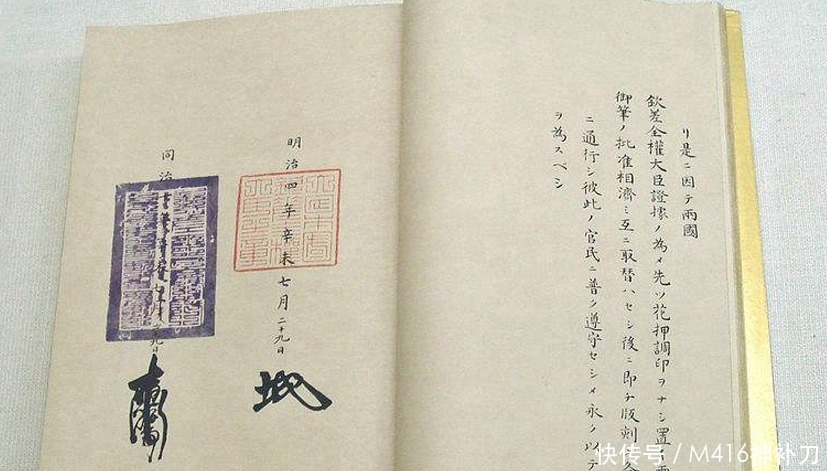 リ是ニ因テ兩國
欽差全權大臣證據ノ為メ先ツ花押調印ヲナシ置
御筆ノ批准相濟ミ互ニ取替ハセシ後ニ即チ版刻
ニ通行シ彼此ノ官民ニ普ク遵守セシメ永ク以テ
ヲ為スベシ
明治四年辛未七月二十九日
同治 九日
快传号 / M416神补刀